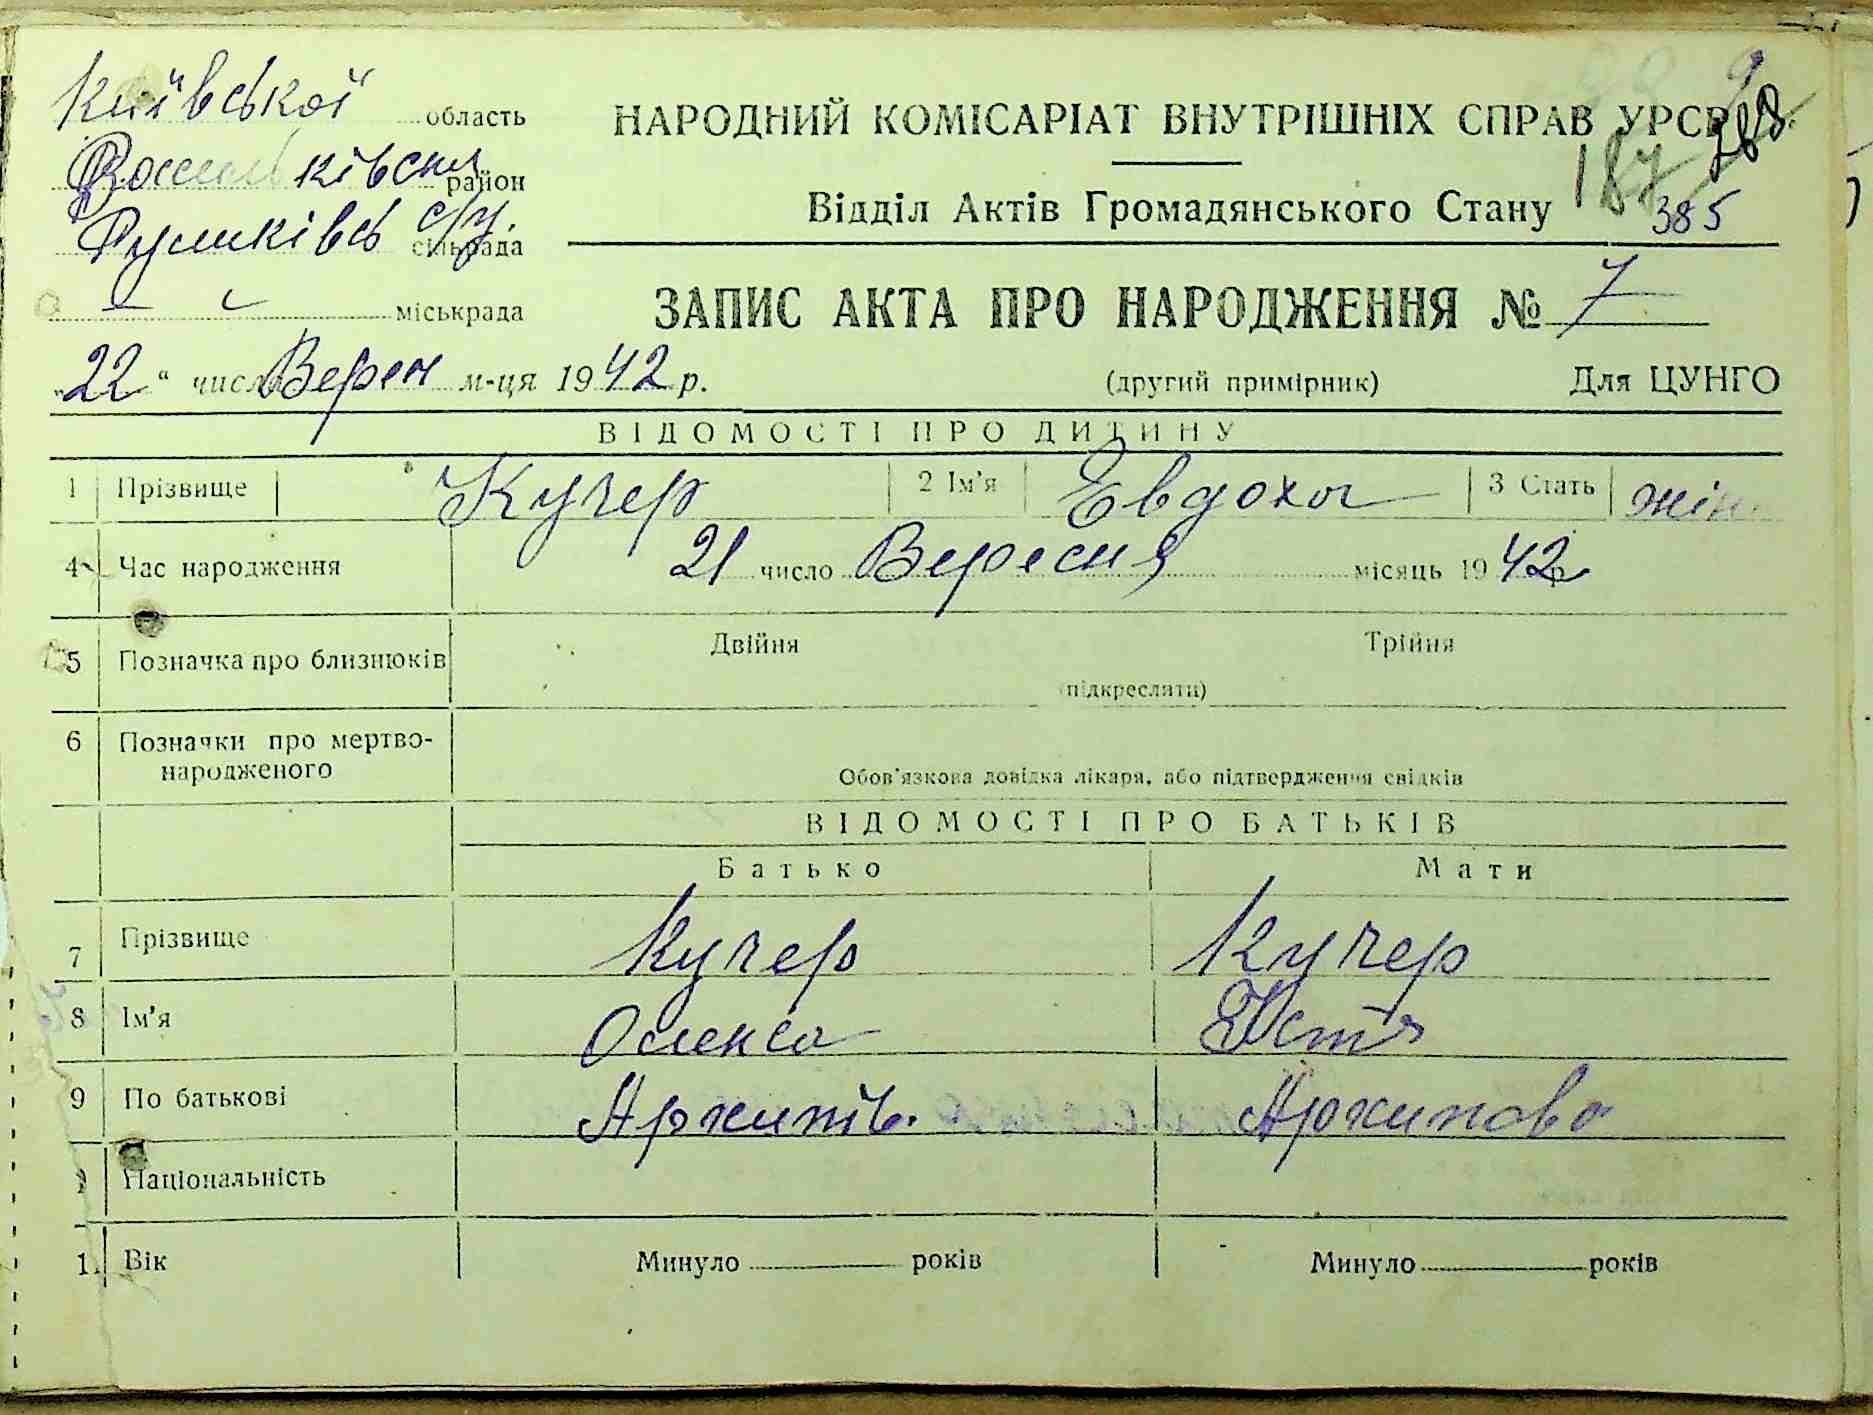 Київської область
НАРОДНИЙ КОМІСАРІАТ ВНУТРІШНІХ СПРАВ УРСР
район
187
Відділ Актів Громадянського Стану 385
сільрада
міськрада
ЗАПИС АКТА ПРО НАРОДЖЕННЯ № 7
„22“ число Верен м-ця 1942 р. (другий примірник) Для ЦУНГО
ВІДОМОСТІ ПРО ДИТИНУ
1 Прізвище Кучер 2 Ім'я Евдоха 3 Стать жін.
4 Час народження 21 число Вересня місяць 1942 р.
5 Позначка про близнюків Двійня Трійня
(підкреслять)
6 Позначки про мертво-
народженого
Обов'язкова довідка лікаря, або підтвердження свідків
ВІДОМОСТІ ПРО БАТЬКІВ
Батько Мати
7 Прізвище Кучер Кучер
8 Ім'я Олекса Устя
9 По батькові Архипів. Архипова
Національність
1 Вік Минуло років Минуло років